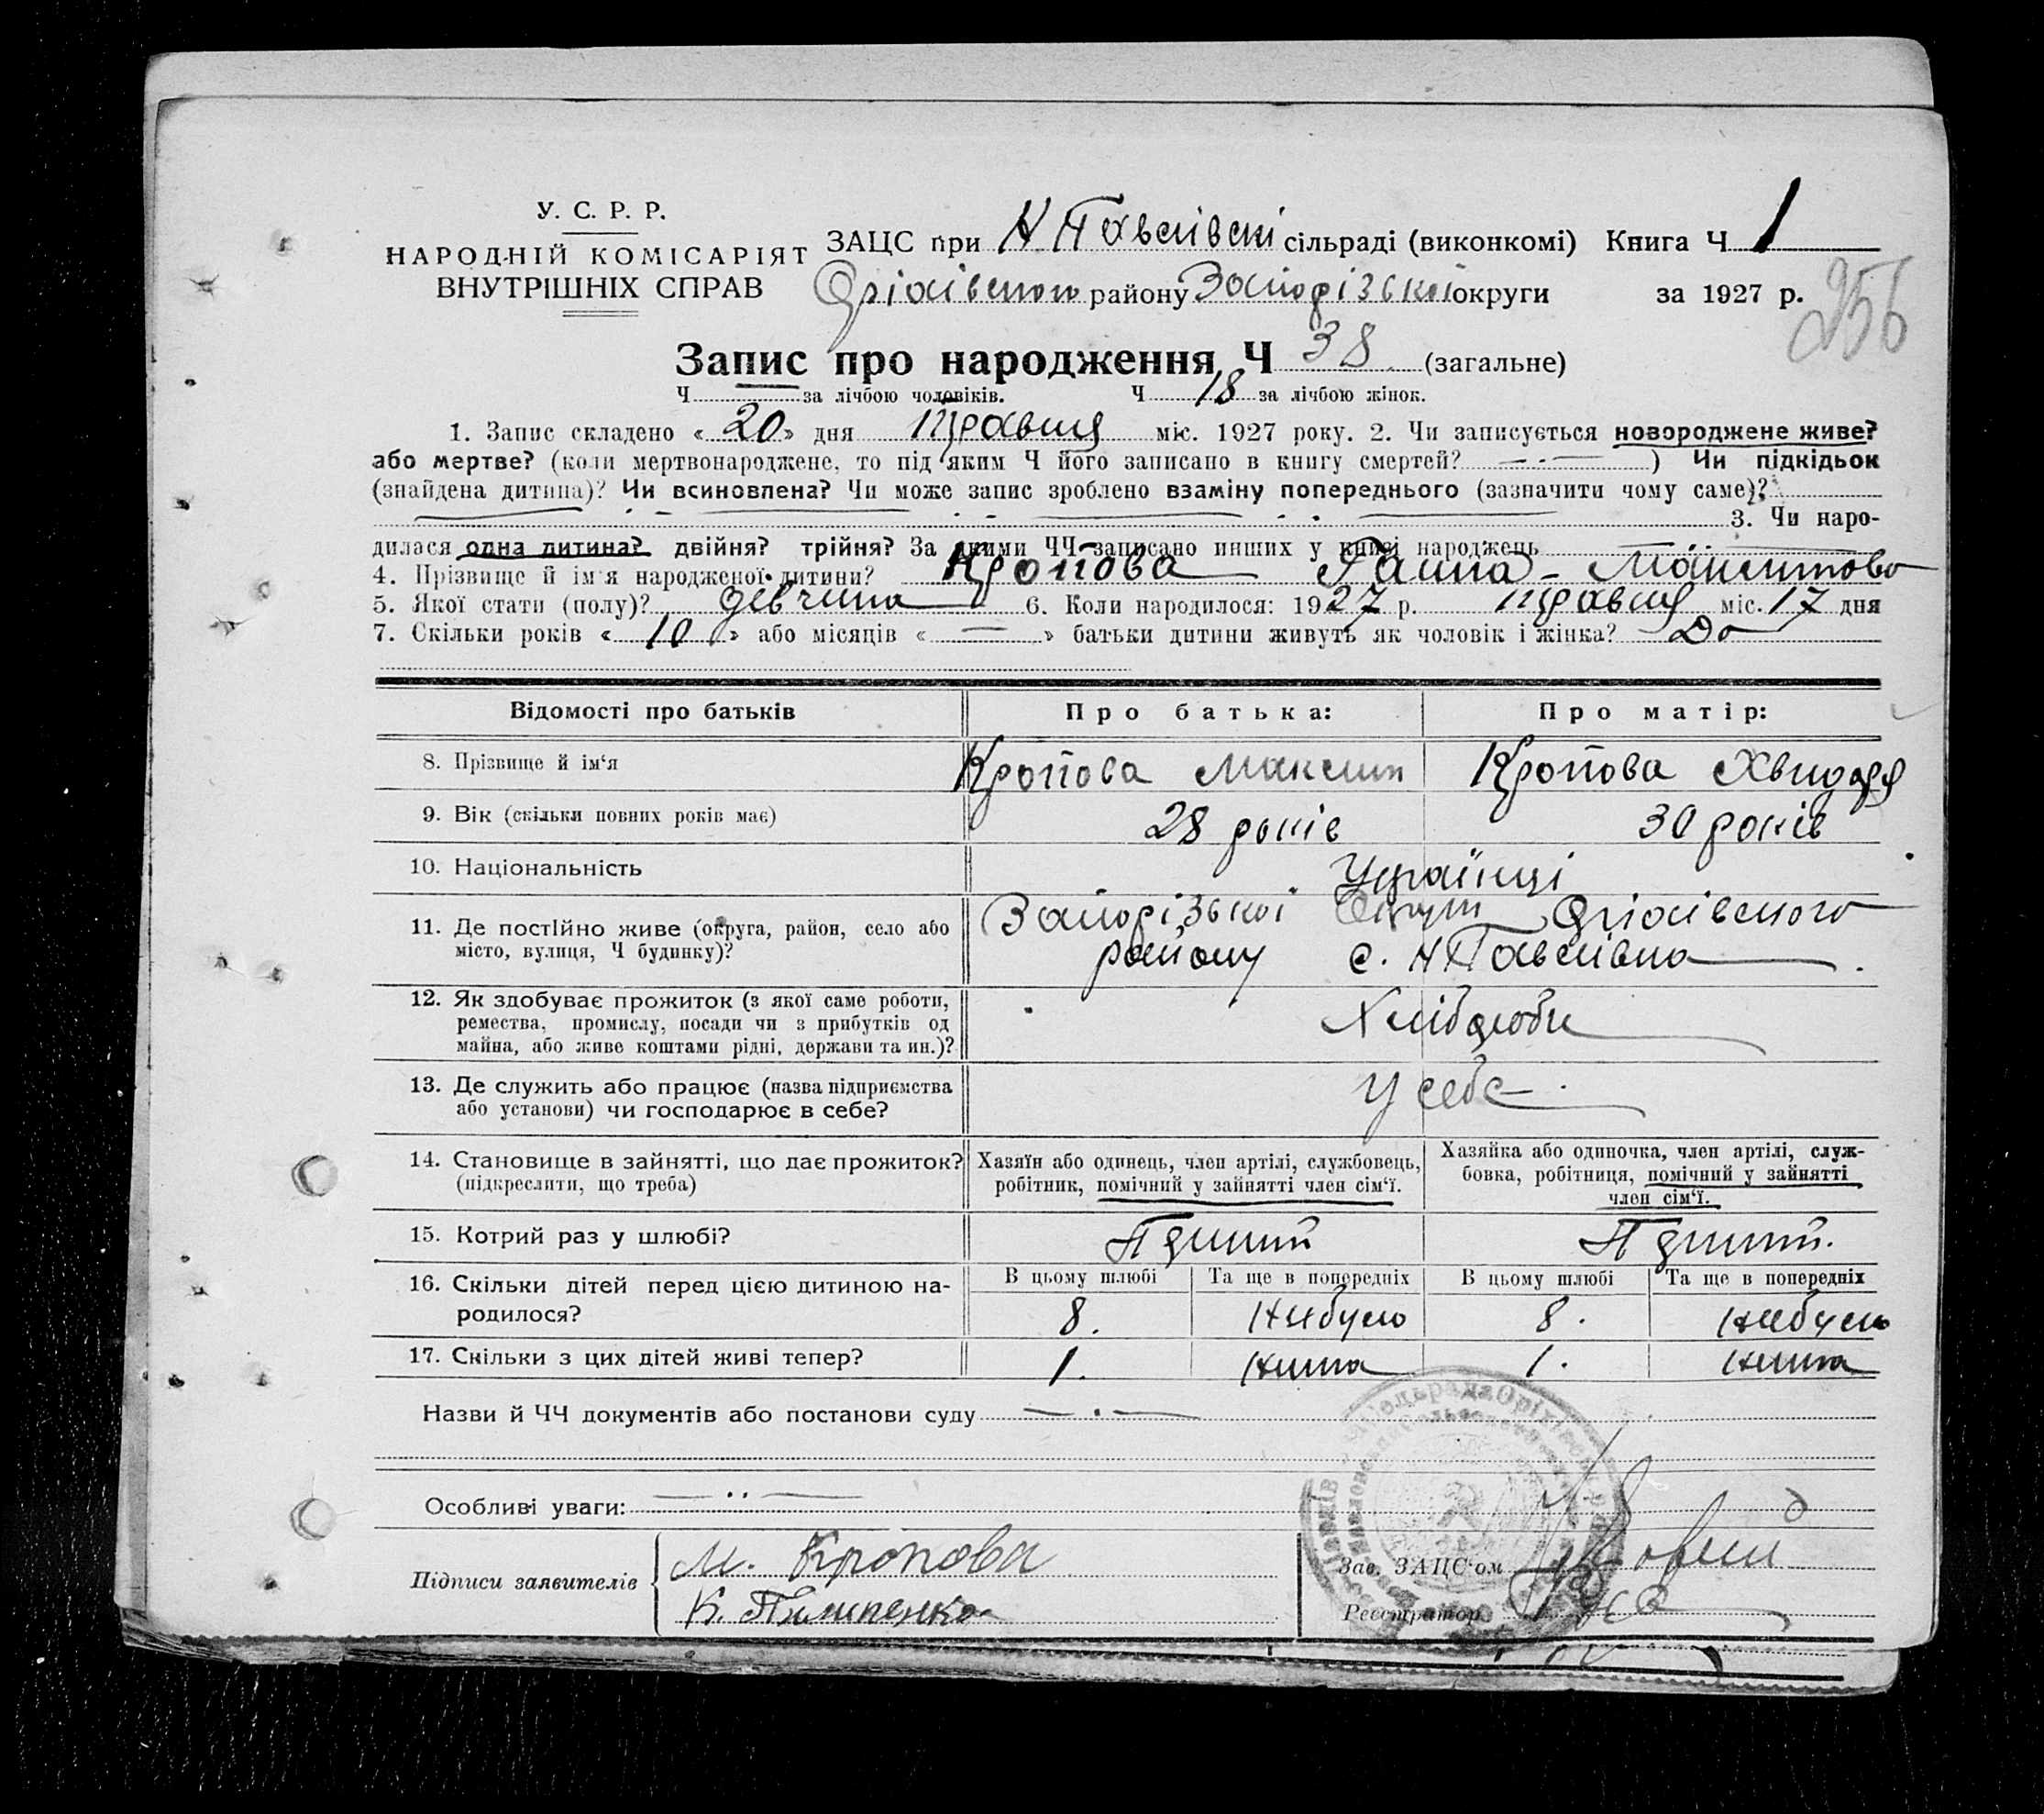 У. С. Р. Р.
НАРОДНІЙ КОМІСАРІЯТ
ВНУТРІШНІХ СПРАВ
ЗАЦС при Н Павлівскі сільраді (виконкомі) Книга Ч 1
Оріхівського району Запорізької округи за 1927 р.
256
Запис про народження Ч 38 (загальне)
Ч за лічбою чоловіків. Ч 18 за лічбою жінок.
1. Запис складено « 20 » дня Травня міс. 1927 року. 2. Чи записується новороджене живе?
або мертве? (коли мертвонароджене, то під яким Ч його записано в книгу смертей? —·— ) Чи підкідьок
(знайдена дитина)? Чи всиновлена? Чи може запис зроблено взаміну попереднього (зазначити чому саме)?
3. Чи наро-
дилася одна дитина? двійня? трійня? За якими ЧЧ записано инших у книзі народжень
4. Прізвище й ім'я народженої дитини? Кропова Ганна - Максимовна
5. Якої стати (полу)? девчина 6. Коли народилося: 1927 р. травня міс. 17 дня
7. Скільки років « 10 » або місяців « — » батьки дитини живуть як чоловік і жінка? До
Відомості про батьків Про батька: Про матір:
8. Прізвище й ім‘я Кропова Максим Кропова Хвидоря
9. Вік (скільки повних років має) 28 років 30 років
10. Національність Українці
11. Де постійно живе (округа, район, село або Запорізької Округи Оріхівського
місто, вулиця, Ч будинку)? району с. Н Павлівка
12. Як здобуває прожиток (з якої саме роботи, Хліброби
ремества, промислу, посади чи з прибутків од
майна, або живе коштами рідні, держави та ин.)?
13. Де служить або працює (назва підприємства У себе
або установи) чи господарює в себе?
14. Становище в зайнятті, що дає прожиток? Хазяїн або одинець, член артілі, службовець, Хазяйка або одиночка, член артілі, служ-
(підкреслити, що треба) робітник, помічний у зайнятті член сім‘ї. бовка, робітниця, помічний у зайнятті
член сім‘ї.
15. Котрий раз у шлюбі?
16. Скільки дітей перед цією дитиною на- В цьому шлюбі Та ще в попередніх В цьому шлюбі Та ще в попередніх
родилося? 8. Небуло 8. Небуло
17. Скільки з цих дітей живі тепер? 1. Нима 1. Нима
Назви й ЧЧ документів або постанови суду —·—
Особливі уваги: — ·· —
Підписи заявителів М. Кропова Зав. ЗАЦС‘ом
К. Пилипенко Реєстратор